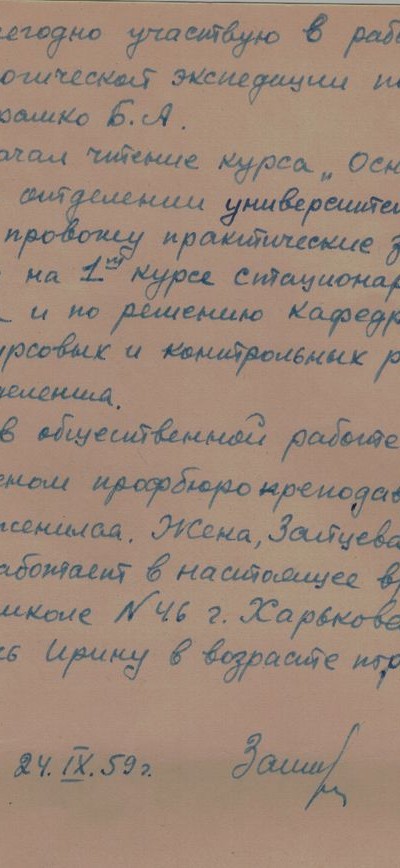 егодно участвую в раб
огической экспедиции п
рамко Б.А.
ачал чтение курса „Осн
отделении университе
провожу практические з
на 1ом курсе стационар
и по решению кафедр
урсовых и контрольных р
деления.
в общественной работе
еном профбюро преподав
женился. Жена, Зайцева
аботает в настоящее в
школе N 46 г. Харькова
ь Ирину в возрасте
24.IX.59г.